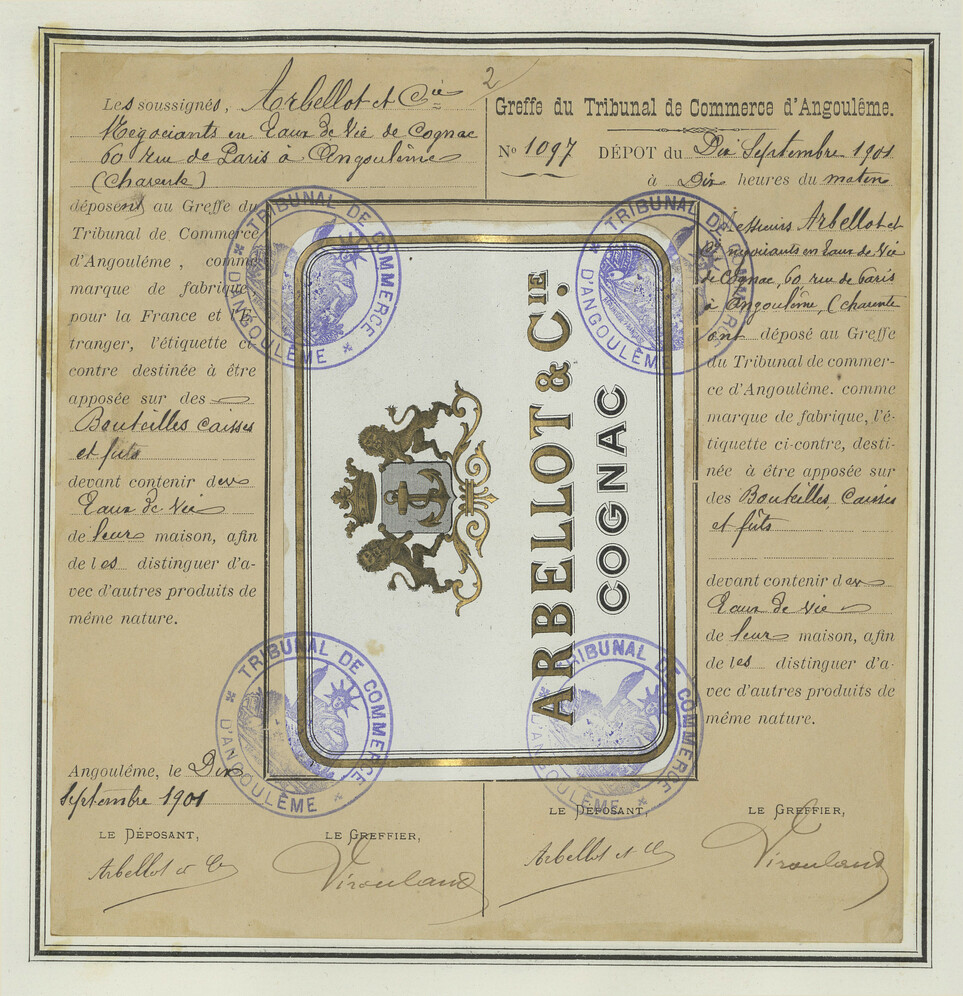 2
Les soussignés, Arbellot et Cie
Négociants en Eaux de Vie de Cognac
60 rue de Paris à Angoulême
(Charente)
déposent au Greffe du
Tribunal de Commerce
d'Angoulême, comme
marque de fabrique
pour la France et l'é-
tranger, l'étiquette ci-
contre destinée à être
apposée sur des
Bouteilles caisses
et futs
devant contenir des
Eaux de Vie
de leur maison, afin
de les distinguer d'a-
vec d'autres produits de
même nature.
Angoulême, le Dix
Septembre 1901
LE DÉPOSANT, LE GREFFIER,
Arbellot et Cie
ARBELLOT & CIE.
COGNAC
TRIBUNAL DE COMMERCE D'ANGOULÊME
TRIBUNAL DE COMMERCE D'ANGOULÊME
TRIBUNAL DE COMMERCE D'ANGOULÊME
TRIBUNAL DE COMMERCE D'ANGOULÊME
Greffe du Tribunal de Commerce d'Angoulême.
No 1097 DÉPOT du Dix Septembre 1901
à Dix heures du matin
Messieurs Arbellot et
Cie négociants en Eaux de Vie
de Cognac, 60 rue de Paris
à Angoulême, (Charente
ont déposé au Greffe
du Tribunal de commer-
ce d'Angoulême. comme
marque de fabrique, l'é-
tiquette ci-contre, desti-
née à être apposée sur
des Bouteilles, Caisses
et fûts
devant contenir des
Eaux de Vie
de leur maison, afin
de les distinguer d'a-
vec d'autres produits de
même nature.
LE DÉPOSANT, LE GREFFIER,
Arbellot et Cie